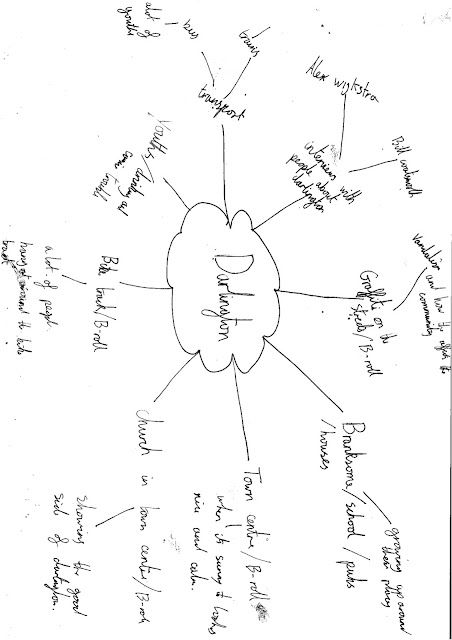 Darlington
transport
trains
bus
a lot of
youths
interviews with
people about
darlington
Alex wigkstra
Bill
Graffiti on the
streets/B-roll
Vandalism and how the affects the
community
Branksome/school/pubs
/houses
growing up around
these places
Town centre/B-roll
when its sunny it looks
nice and calm.
church in town centre/B-roll
Showing the good
side of darlington.
Bike track/B-roll
a lot of people
hang out around the bike
track
Youths/drinking and
trouble